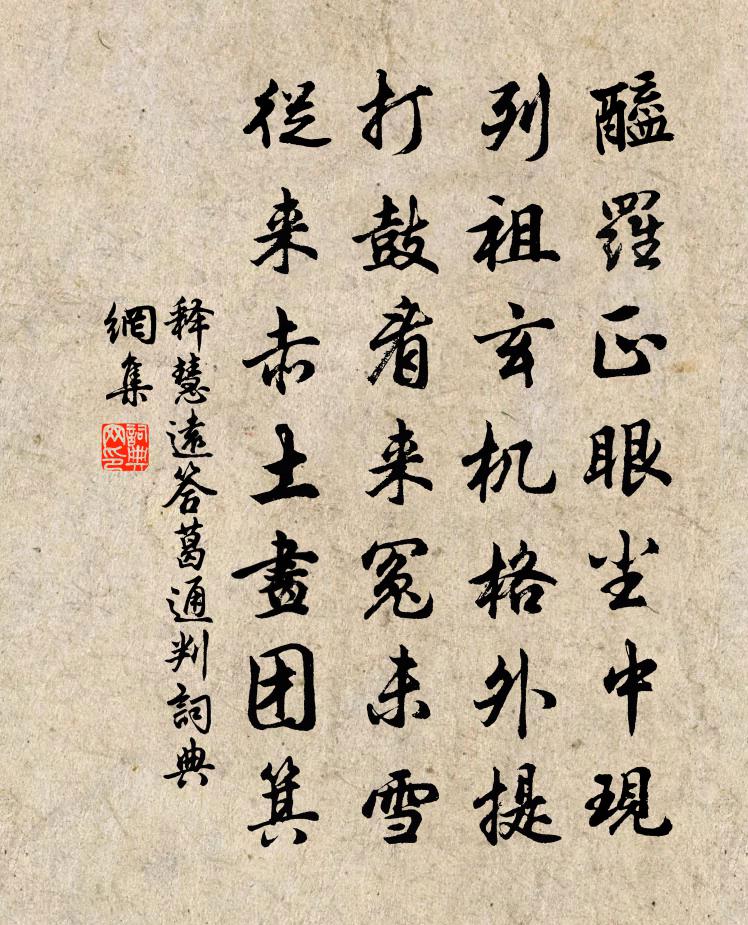 醯羅正眼尘中現
列祖玄机格外提
打鼓看来冤未雪
從来赤土畫团箕
释慧遠答葛通判詞典
網集
詞典网印